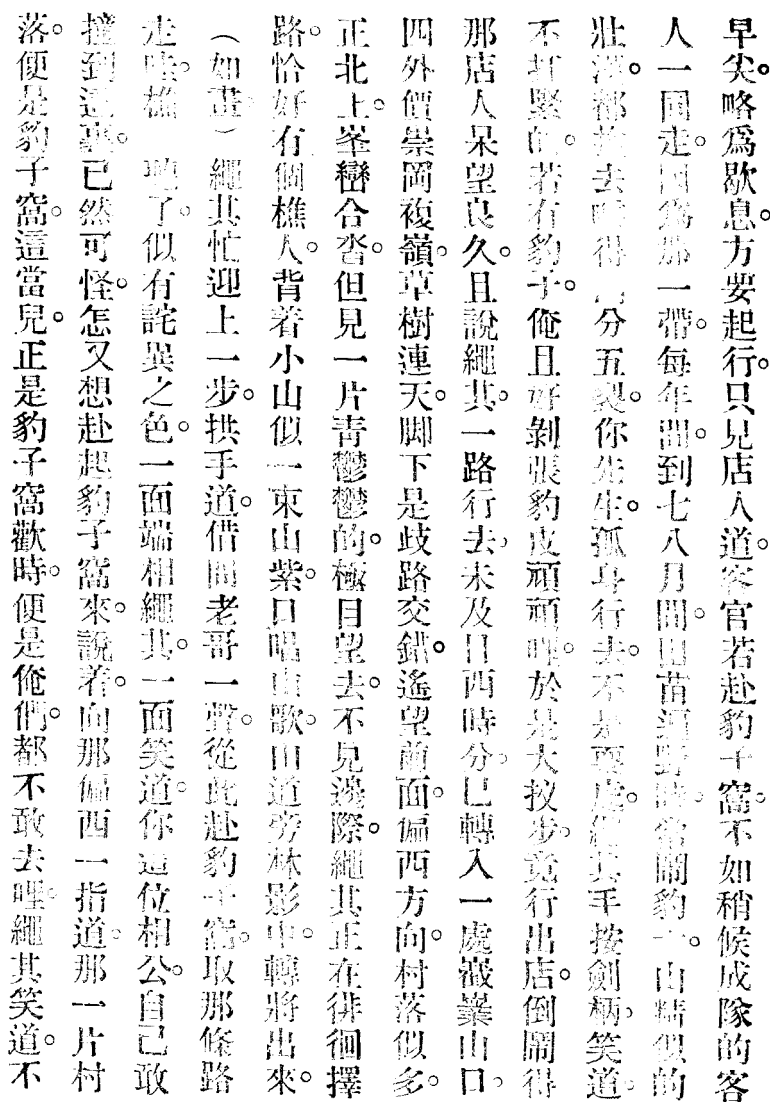 早尖略爲歇息。方要起行。只見店人道。客官若赴豹子窩。不如稍候成隊的客
人一同走。因爲那一帶。每年間。到七八月間。田苗遍野。時常鬧豹子。山精似的
壯漢。都拖去吃得 分五裂。你先生。孤身行去。不是耍處。繩其手按劍柄。笑道。
不打緊的。若有豹子。俺且好剝張豹皮頑頑哩。於是大拉步。竟行出店。倒鬧得
那店人呆望良久。且說繩其。一路行去。未及日西時分。已轉入一處巖業山口。
四外價崇岡複嶺。草樹連天。脚下是歧路交錯。遙望前面。偏西方向。村落似多。
正北上。峯巒合沓。但見一片青鬱鬱的。極目望去。不見邊際。繩其正在徘徊擇
路。恰好有個樵人。背着小山似一束山紫。口唱山歌。由道旁林影中。轉將出來。
（如畫）繩其忙迎上一步。拱手道。借問老哥一聲。從此赴豹子窩。取那條路
走哇。樵 了。似有詫異之色。一面端相繩其。一面笑道。你這位相公。自己敢
撞到這裏。已然可怪。怎又想赴起豹子窩來。說着。向那偏西一指道。那一片村
落。便是豹子窩。這當兒。正是豹子窩歡時。便是俺們。都不敢去哩。繩其笑道。不